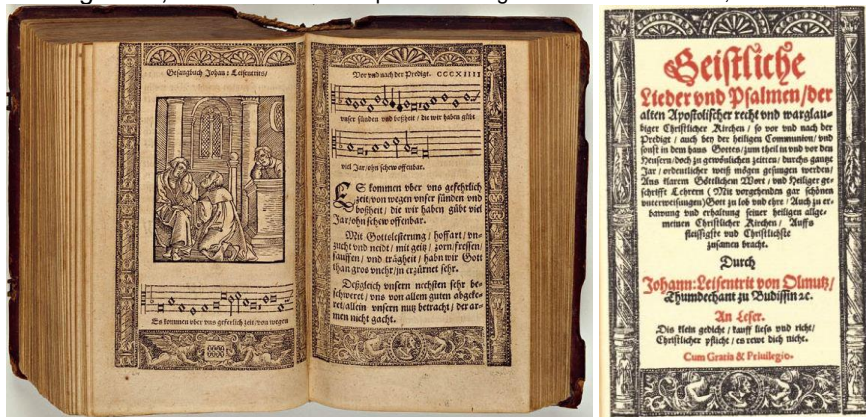 Gesangbuch Johan: Leisentrits/
Es kommen vber vns geferlich zeit/von wegen
Vor vnd nach der Predigt. CCCXIIII
vnser sünden vnd boßheit/ die wir haben gübt
viel Jar/ohn schew offenbar.
ES kommen vber vns gefehrlich
zeit/von wegen vnser sünden vnd
boßheit/ die wir haben gübt viel
Jar/ohn schew offenbar.
Mit Gottslesterung/ hoffart/ vn-
zucht vnd neidt/ mit geitz/ zorn/fressen/
sauffen/ vnd trägheit/ habn wir Gott
than gros vnehr/jn erzürnet sehr.
Deßgleich vnsern nechsten sehr be-
schweret/ vns von allem guten abgeke-
ret/allein vnsern nutz betracht/ der ar-
men nicht gacht.
Geistliche
Lieder vnd Psalmen/der
alten Apostolischer recht vnd warglau-
biger Christlicher Kirchen/ so vor vnd nach der
Predigt/ auch bey der heiligen Communion/ vnd
sonst in dem haus Gottes/zum theil in vnd vor den
Heusern/doch zu gewönlichen zeitten/ durchs gantze
Jar/ ordentlicher weiß mögen gesungen werden/
Aus klarem Göttlichem Wort/ vnd Heiliger ge-
schrifft Lehrern (Mit vorgehenden gar schönen
vnterweisungen) Gott zu lob vnd ehre/ Auch zu er-
bawung vnd erhaltung seiner heiligen allge-
meinen Christlicher Kirchen/ Auffs
fleissigste vnd Christlichste
zusamen bracht.
Durch
Johann: Leisentrit von Olmutz/
Thumdechant zu Budissin ꝛc.
An Leser.
Dis klein gedicht/ kauff lies vnd richt/
Christlicher pflicht/ es rewt dich nicht.
Cum Gratia & Priuilegio.